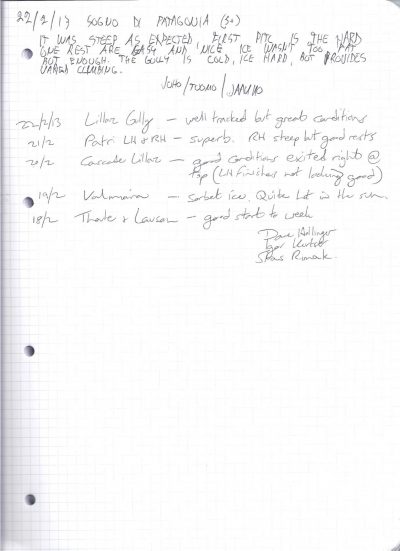 22/2/13 SOGNO DI PATAGONIA (3+)
IT WAS STEEP AS EXPECTED, FIRST PITC. IS THE HARD
ONE REST ARE EASY AND NICE. ICE WASN'T TOO FAT
BUT ENOUGH. THE GULLY IS COLD, ICE HARD, BUT PROVIDES
VARIED CLIMBING.
JUHO/TUOMO/JARMO
22/2/13 Lillaz Gully – well tracked but great conditions
21/2 Patri LH & RH – superb. RH steep but good rests
20/2 Cascade Lillaz – good conditions exited right @
top (LH finishes not looking good)
19/2 Valmiana – sorbet ice. Quite hot in the sun.
18/2 Thoule & Lauson – good start to week
Dave Hollinger
Igor